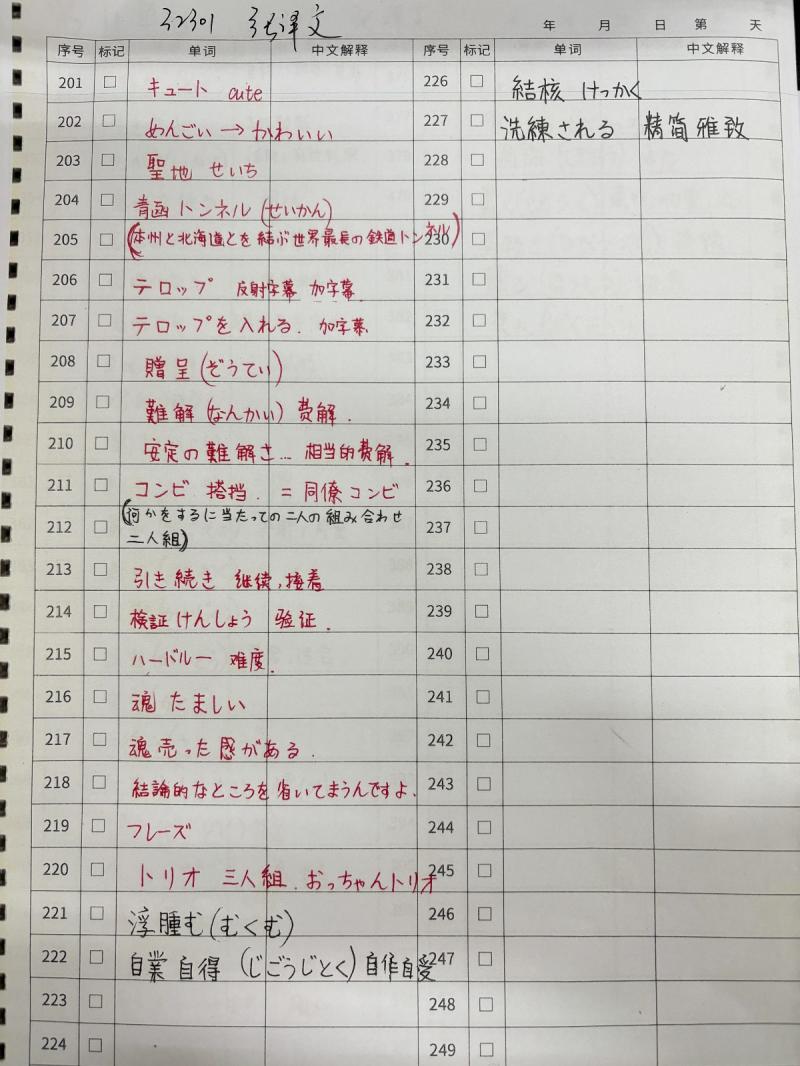 32301 张译文
年 月 日 第 天
序号 标记 单词 中文解释 序号 标记 单词 中文解释
201 キュート cute
202 めんごい→かわいい
203 聖地 せいち
204 青函トンネル (せいかん)
205 (本州と北海道とを結ぶ世界最長の鉄道トンネル)
206 テロップ 反射字幕 加字幕.
207 テロップを入れる. 加字幕
208 贈呈(ぞうてい)
209 難解(なんかい) 费解.
210 安定の難解さ… 相当的费解.
211 コンビ 搭挡. = 同僚コンビ
212 (何かをするに当たっての二人の組み合わせ
二人組)
213 引き続き 继续,接着
214 検証けんしょう 验证.
215 ハードルー 难度.
216 魂 たましい
217 魂売った感がある.
218 結論的なところを省いてまうんですよ.
219 フレーズ
220 トリオ 三人組. おっちゃんトリオ
221 浮腫む(むくむ)
222 自業自得 (じごうじとく) 自作自受
223
224
226 結核 けっかく
227 洗練される 精简雅致
228
229
230
231
232
233
234
235
236
237
238
239
240
241
242
243
244
245
246
247
248
249